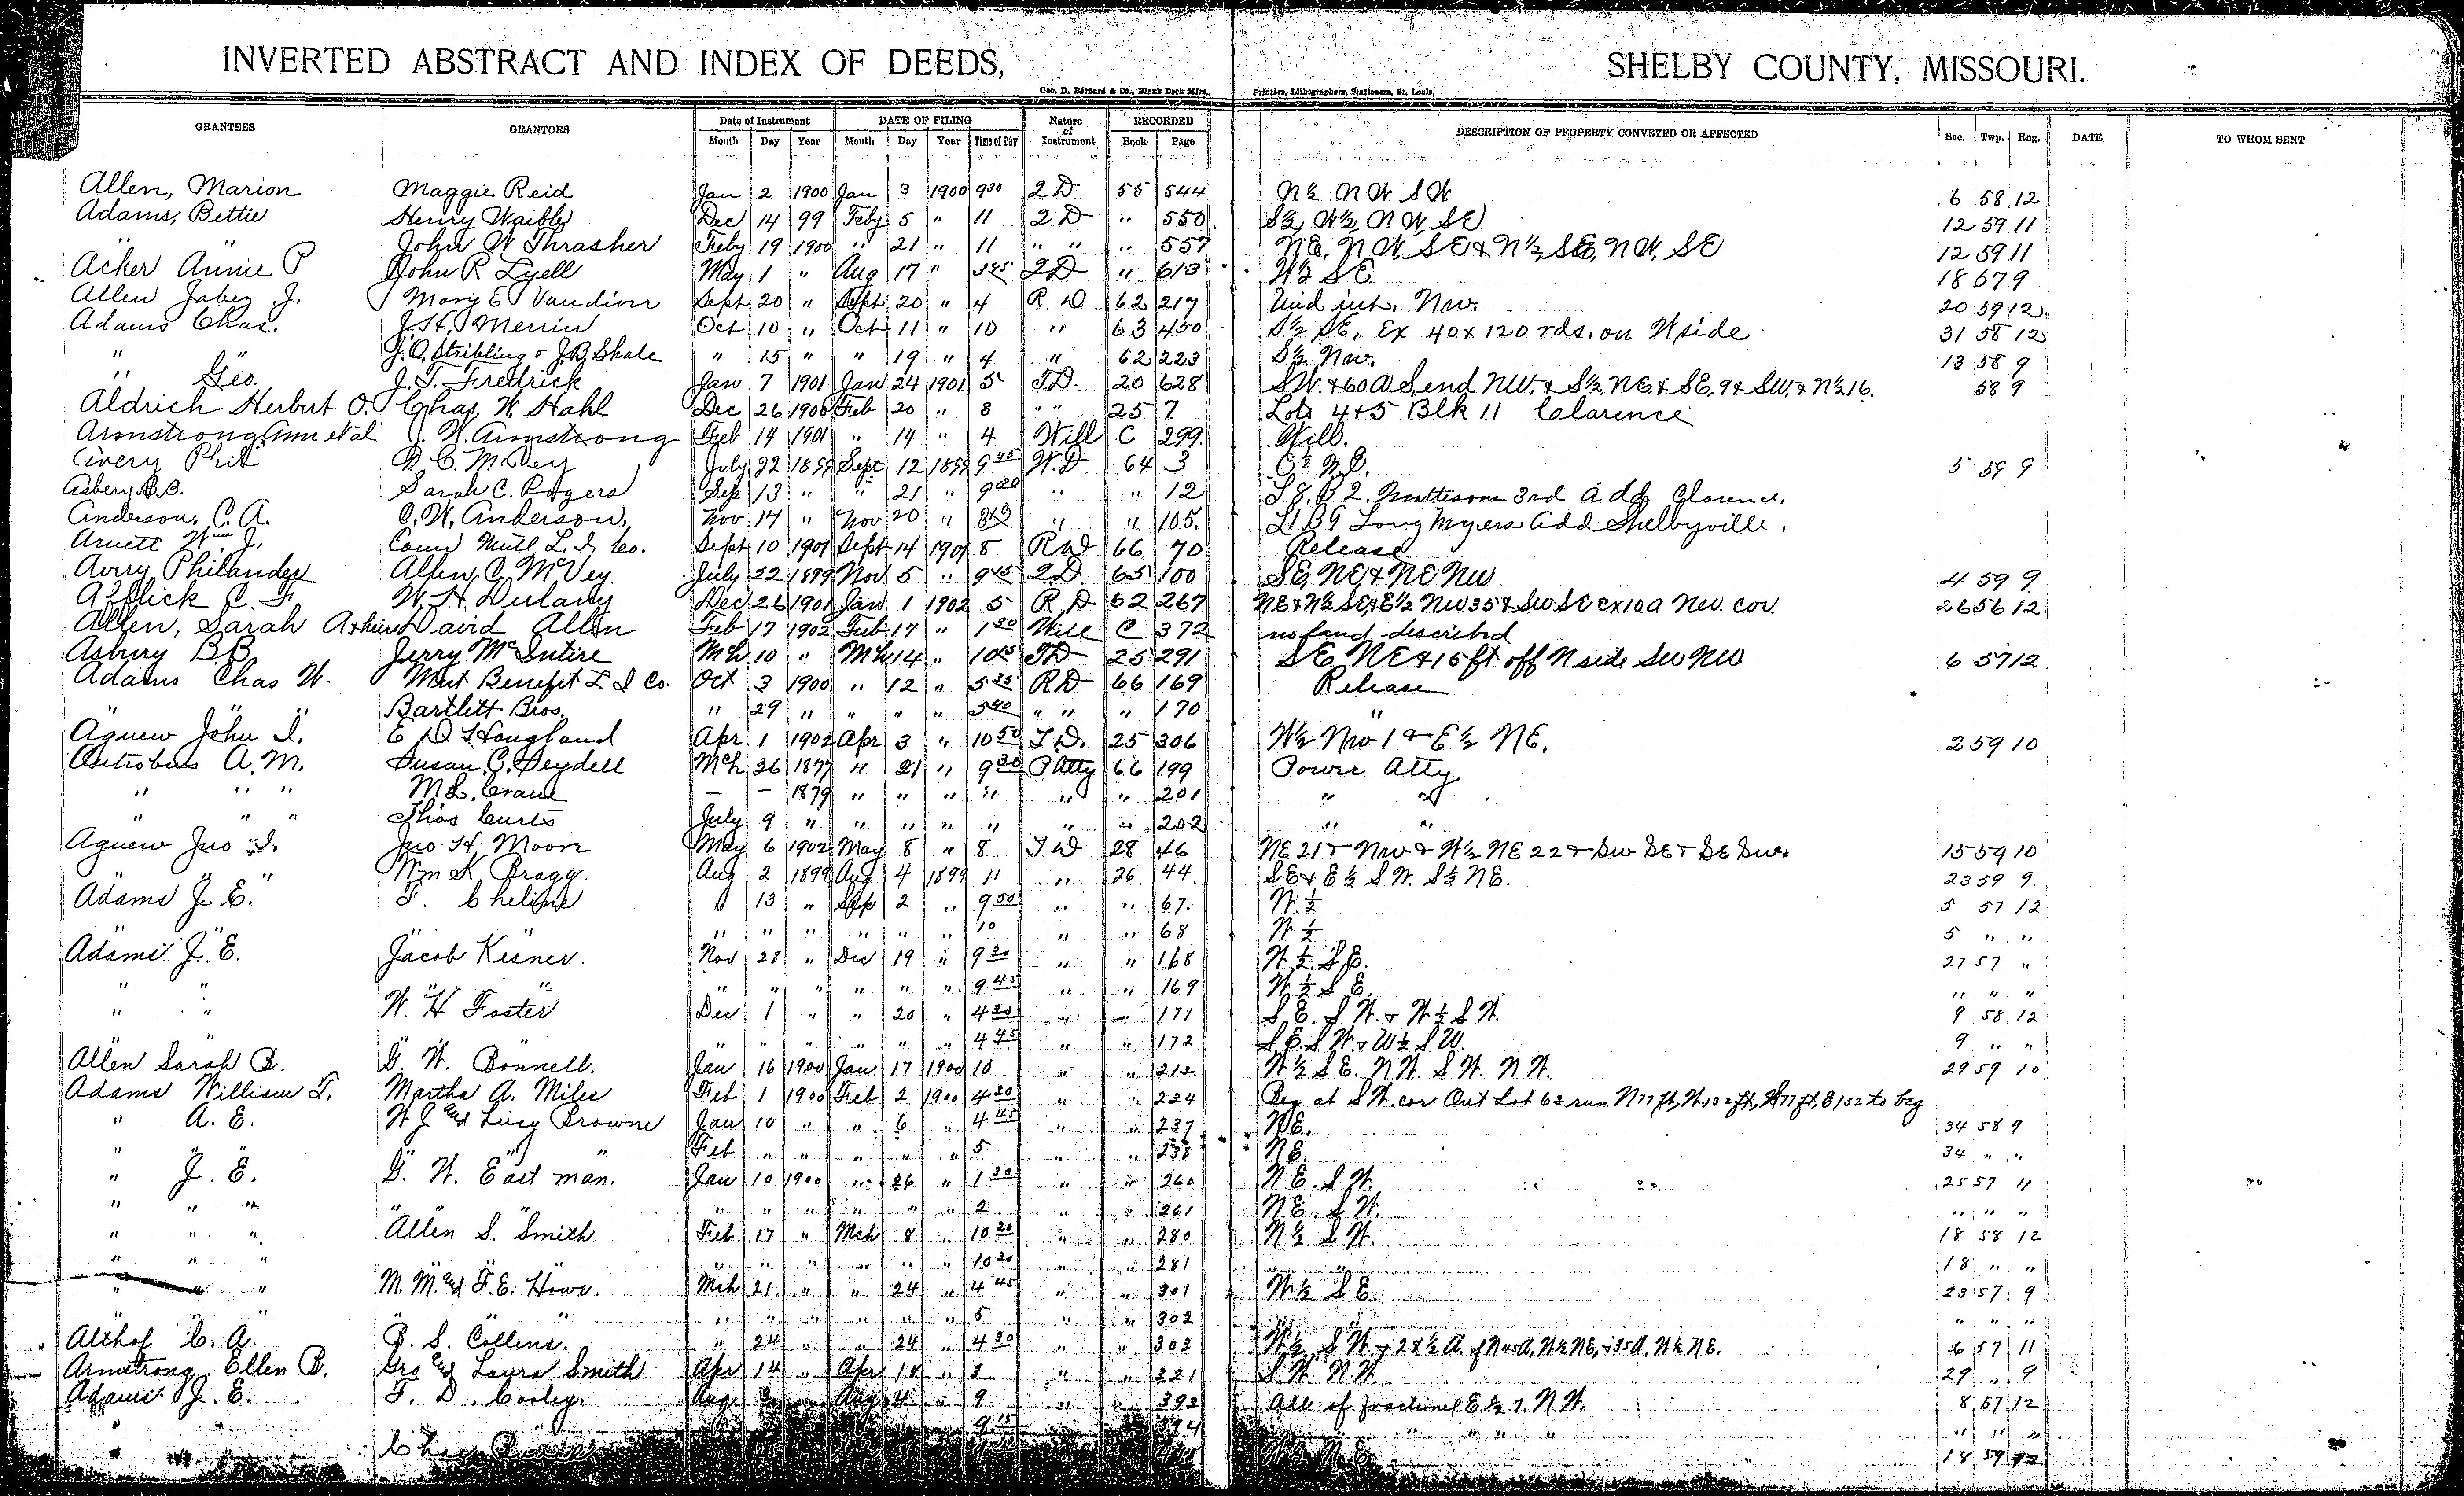 INVERTED ABSTRACT AND INDEX OF DEEDS, SHELBY COUNTY, MISSOURI.
Geo. D. Barnard & Co., Blank Book Mfrs., Printers, Lithographers, Stationers, St. Louis.
GRANTEES GRANTORS Date of Instrument DATE OF FILING Nature of Instrument RECORDED DESCRIPTION OF PROPERTY CONVEYED OR AFFECTED Sec. Twp. Rng. DATE TO WHOM SENT
Month Day Year Month Day Year Time of Day Book Page
Allen, Marion Maggie Reid Jan 2 1900 Jan 3 1900 9 30 2 D 55 544 N½ NW SW 6 58 12
Adams, Bettie Henry Waibly Dec 14 99 Feby 5 " 11 2 D " 550 S½, W½, NW, SE 12 59 11
" " John W Thrasher Feby 19 1900 " 21 " 11 " " " 557 NE, NW, SE & N½, SE, NW, SE 12 59 11
Acker Annie P John R Lyell May 1 " Aug 17 " 2 D " 613 W½ SE 18 67 9
Allen Jabez J. Mary E Vandiver Sept 20 " Sept 20 " 4 R D 62 217 Und int. NW. 20 59 12
Adams Chas. J.H. Merrin Oct 10 " Oct 11 " 10 " 63 450 S½ SE, Ex 40 x 120 rds. on W side 31 58 12
" J.O. Stribling & J.B. Shale " 15 " " 19 " 4 " 62 223 S½ NW. 13 58 9
" Geo. J. T. Fredrick Jan 7 1901 Jan 24 1901 5 T.D. 20 628 SW. & 60 a S. end NW. & S½, NE & SE, 9 & SW. & N½ 16. 58 9
Aldrich Herbert O. Chas. W. Stahl Dec 26 1900 Feb 20 " 8 " " 25 7 Lots 4 & 5 Blk 11 Clarence
Armstrong, Ann et al J. W. Armstrong Feb 14 1901 " 14 " 4 Will C 299 Will.
Avery Phil A. C. McVey July 22 1899 Sept 12 1899 9 45 W.D 64 3 5 59 9
Asbery B.B. Sarah C. Rogers Sep 13 " " 21 " 9 20 " " 12 L 8, B 2. Mattesons 3rd Add Clarence,
Anderson, C. A. C. W. Anderson, Nov 14 " Nov 20 " " " 105. L 1 B 9 Long Myers Add Shelbyville.
Arnett Wm J. Conn Mutl L. I. Co. Sept 10 1901 Sept 14 1901 8 R D 66 70 Release
Avery Philander Allen C. McVey. July 22 1899 Nov 5 " 9 45 2 D 65 100 SE, NE & NE NW 4 59 9
Afflick C. F W. H. Dulany Dec 26 1901 Jan 1 1902 5 R D 62 267 NE & N½ SE & E½ NW 35 & SW SE ex 10 a NW. cor. 26 56 12
Allen, Sarah A et al David Allen Feb 17 1902 Feb 17 " 1 30 Will C 372 no land described
Asbury B.B. Jerry McIntire Mch 10 " Mch 14 " 10 45 TD 25 291 SE NE & 15 ft off N side SW NW 6 57 12
Adams Chas W. Mut Benefit L I Co. Oct 3 1900 " 12 " 5 35 RD 66 169 Release
" " " Bartlett Bros. " 29 " " " " 5 40 " " " 170 "
Agnew John I. E D. Hougland Apr 1 1902 Apr 3 " 10 50 T D. 25 306 W½ NW 1 & E½ NE. 2 59 10
Antrobus A. M. Susan C. Deydell Mch 26 1877 " 21 " 9 30 P Atty 66 199 Power Atty
" " " M L. Crane — — 1879 " " " " " " 201 " "
" " " Thos Curts July 9 " " " " " " " 202 " "
Agnew Jno I. Jno. H. Moore May 6 1902 May 8 " 8 T D 28 46 NE 21 & NW & W½ NE 22 & SW SE & SE SW. 15 59 10
" " Wm K. Bragg. Aug 2 1899 Aug 4 1899 11 " 26 44 SE & E½ S W. S½ NE. 23 59 9.
Adams J. E. F. Cheline " 13 " Sep 2 " 9 50 " " 67. W. ½ 5 57 12
" " " " " " " " " 10 " " 68 W ½ 5 " "
Adams J. E. Jacob Kesner. Nov 28 " Dec 19 " 9 30 " " 168 W ½ S E. 27 57 "
" " " " " " " " " 9 45 " " 169 W ½ S E. " " "
" " W. H Foster Dec 1 " " 20 " 4 30 " " 171 S E. S W. & W ½ S W. 9 58 12
" " " " " " " " 4 45 " " 172 S E. S W. & W ½ S W. 9 " "
Allen Sarah B. G. W. Bonnell. Jan 16 1900 Jan 17 1900 10 " " 212 W ½ S E. N W. S W. N W. 29 59 10
Adams William T. Martha A. Miles Feb 1 1900 Feb 2 1900 4 20 " " 224 Beg at S W. cor Out Lot 63 run N 77 ft, W. 132 ft, S 77 ft, E 132 to beg
" A. E. W J and Lucy Browne Jan 10 " " 6 " 4 45 " " 237 NE. 34 58 9
" " " Feb " " " " " 5 " " 238 NE. 34 " "
" J. E. G. W. East man. Jan 10 1900 " 26 " 1 30 " " 260 N E. S W. 25 57 11
" " " " " " " " " " 2 " " 261 N E. S W. " " "
" " " Allen S. Smith Feb 17 " Mch 8 " 10 20 " " 280 N ½ S W. 18 58 12
" " " " " " " " " 10 20 " " 281 " " 18 " "
" " " M. M. and F. E. Howe. Mch 21 " " 24 " 4 45 " " 301 W ½ S E. 23 57 9
" " " " " " " " " 5 " " 302 " " "
Althof C. A. P. S. Collens. " 24 " " 24 " 4 30 " " 303 W ½ S W. 6 57 11
Armstrong. Ellen B. Geo and Laura Smith Apr 14 " Apr 18 " 3 " " 321 S W. N W. 29 " 9
Adams J. E. F. D. Cooley. Aug 3 " Aug 4 " 9 " " 393 All of fractional E ½ N W. 8 57 12
" 9 15 394 " " " " " " "
Chas 18 59 12